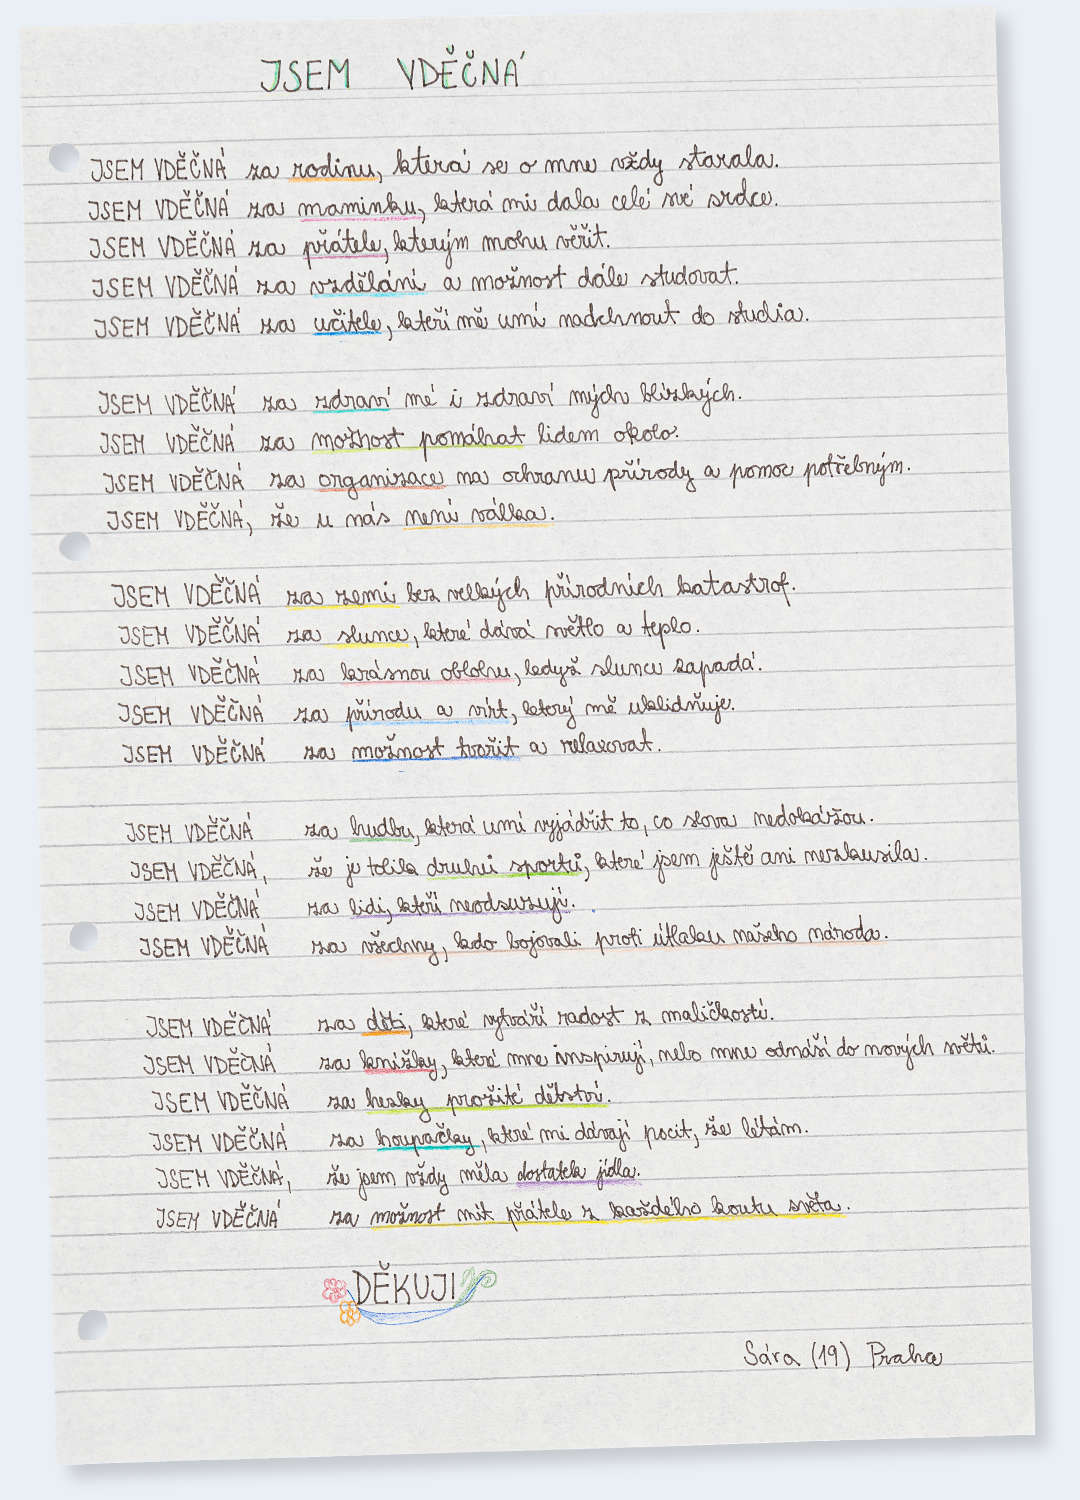 JSEM VDĚČNÁ
JSEM VDĚČNÁ za rodinu, která se o mne vždy starala.
JSEM VDĚČNÁ za maminku, která mi dala celé své srdce.
JSEM VDĚČNÁ za přátele, kterým mohu věřit.
JSEM VDĚČNÁ za vzdělání a možnost dále studovat.
JSEM VDĚČNÁ za učitele, kteří mě umí nadchnout do studia.
JSEM VDĚČNÁ za zdraví mé i zdraví mých blízkých.
JSEM VDĚČNÁ za možnost pomáhat lidem okolo.
JSEM VDĚČNÁ za organizace na ochranu přírody a pomoc potřebným.
JSEM VDĚČNÁ, že u nás není válka.
JSEM VDĚČNÁ za zemi bez velkých přírodních katastrof.
JSEM VDĚČNÁ za slunce, které dává světlo a teplo.
JSEM VDĚČNÁ za krásnou oblohu, když slunce zapadá.
JSEM VDĚČNÁ za přírodu a vítr, který mě uklidňuje.
JSEM VDĚČNÁ za možnost tvořit a relaxovat.
JSEM VDĚČNÁ za hudbu, která umí vyjádřit to, co slova nedokážou.
JSEM VDĚČNÁ, že je tolik druhů sportů, které jsem ještě ani nezkusila.
JSEM VDĚČNÁ za lidi, kteří neodsuzují.
JSEM VDĚČNÁ za všechny, kdo bojovali proti útlaku našeho národa.
JSEM VDĚČNÁ za děti, které vytváří radost z maličkostí.
JSEM VDĚČNÁ za knížky, které mne inspirují, nebo mne odnáší do nových světů.
JSEM VDĚČNÁ za hezky prožité dětství.
JSEM VDĚČNÁ za houpačky, které mi dávají pocit, že létám.
JSEM VDĚČNÁ, že jsem vždy měla dostatek jídla.
JSEM VDĚČNÁ za možnost mít přátele z každého koutu světa.
DĚKUJI
Sára (19) Praha